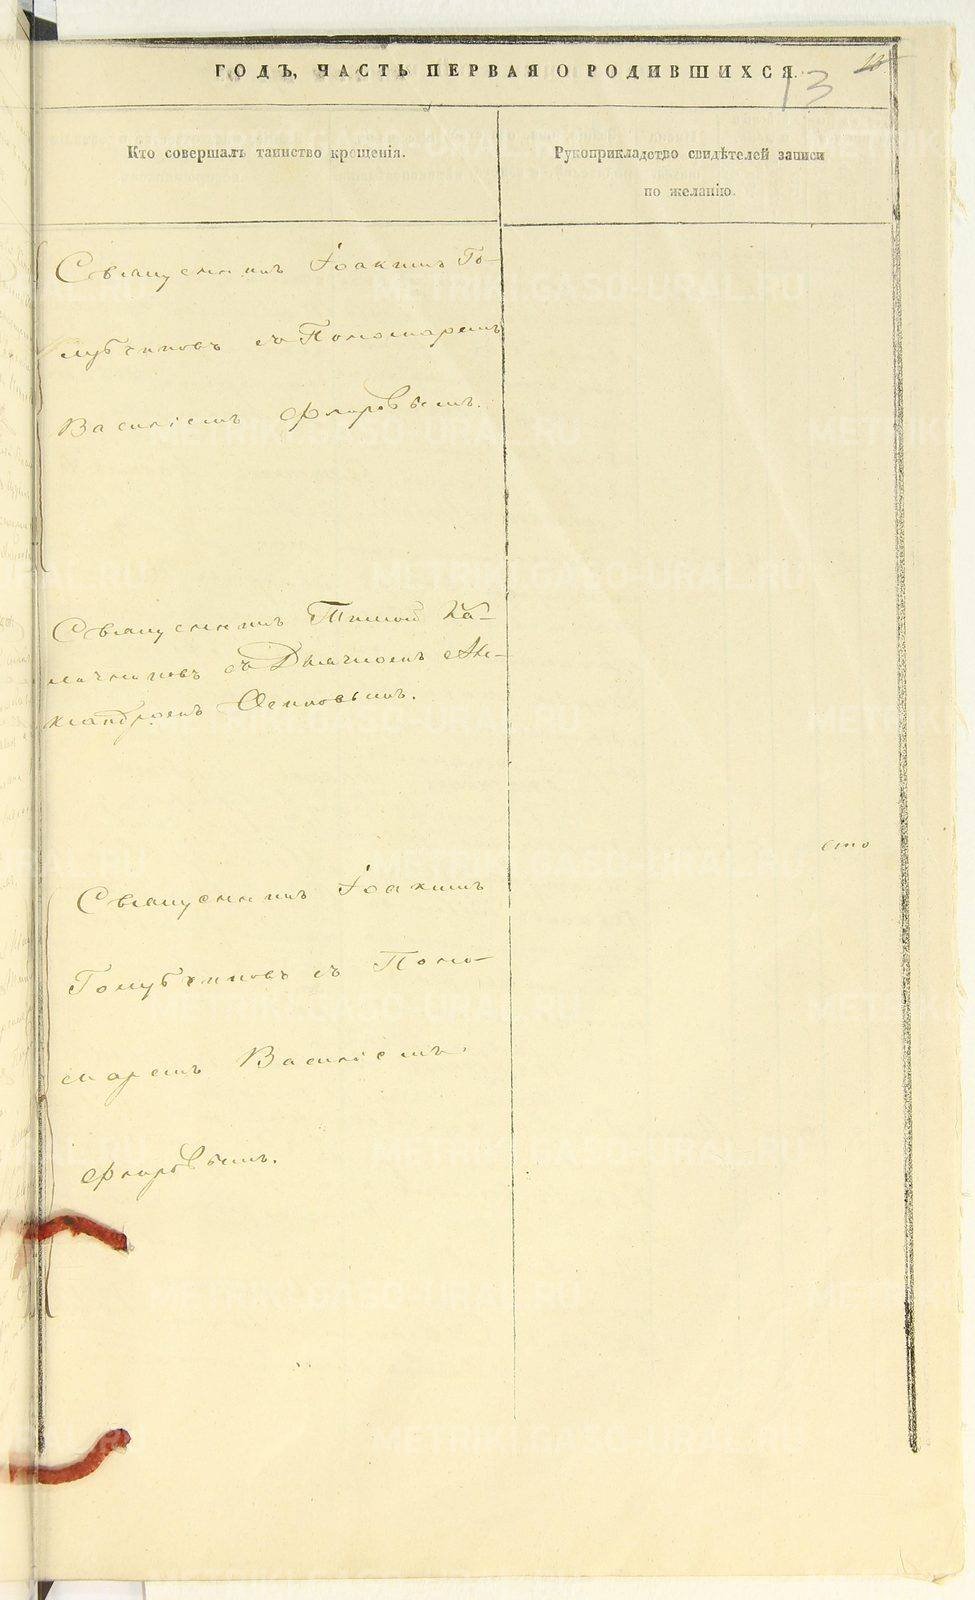 ГОДЪ, ЧАСТЬ ПЕРВАЯ О РОДИВШИХСЯ.
13
Кто совершалъ таинство крещенія.
Рукоприкладство свидѣтелей записи
по желанію.
Священникъ Іоакимъ Го-
лубчиковъ съ Пономаремъ
Василіемъ Флоровымъ.
Священникъ Тимоѳ Ка-
лачниковъ съ Дьячкомъ Але-
ксандромъ Осиповымъ.
сто
Священникъ Іоакимъ
Голубчиковъ съ Поно-
маремъ Василіемъ
Флоровымъ.
METRIKI.GASO-URAL.RU